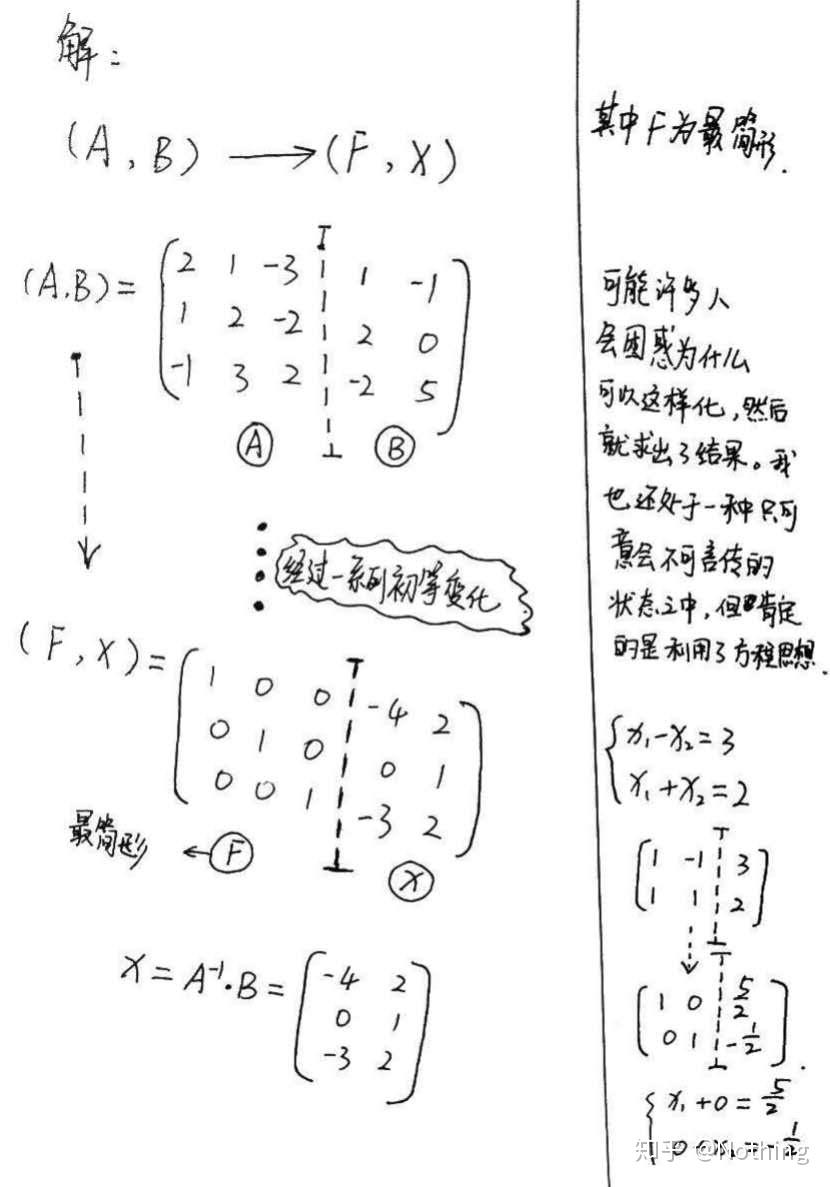 解:
(A, B) → (F, X)
(A.B) =
2 1 -3 1 -1
1 2 -2 2 0
-1 3 2 -2 5
A B
经过一系列初等变化
(F, X) =
1 0 0 -4 2
0 1 0 0 1
0 0 1 -3 2
最简形 ← F
X
X = A⁻¹·B =
-4 2
0 1
-3 2
其中F为最简形.
可能许多人
会困惑为什么
可以这样化,然后
就求出了结果。我
也还处于一种只可
意会不可言传的
状态之中,但肯定
的是利用了方程思想.
x₁-x₂=3
x₁+x₂=2
1 -1 3
1 1 2
1 0 5/2
0 1 -1/2
x₁+0=5/2
0+x₂=-1/2
知乎 @Nothing